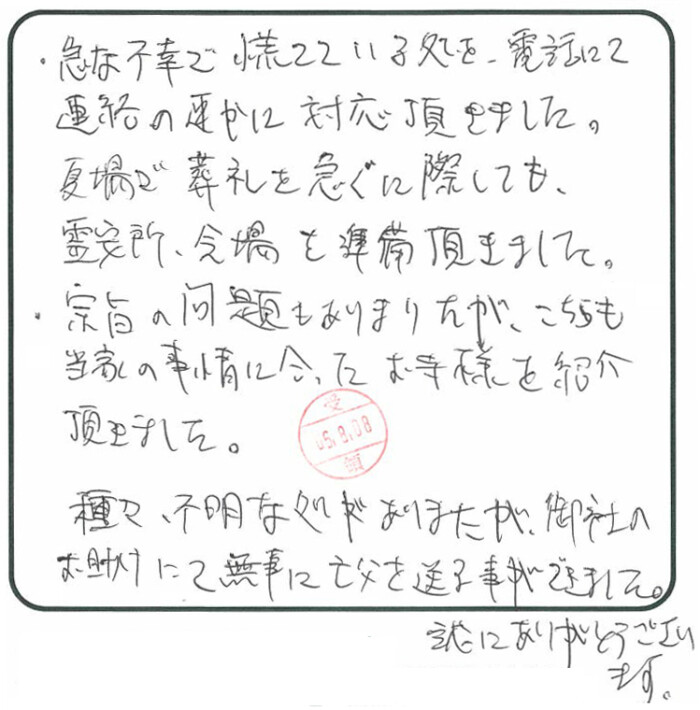 ・急な不幸で慌てている処を、電話にて
連絡の速かに対応頂きました。
夏場で葬礼を急ぐに際しても、
霊安所、会場を準備頂きました。
・宗旨の問題もありましたが、こちらも
当家の事情に合ったお寺様を紹介
頂きました。
受
05.8.08
領
種々、不明な処がありましたが、御社の
お助けにて無事に亡父を送る事ができました。
誠にありがとうござい
ます。